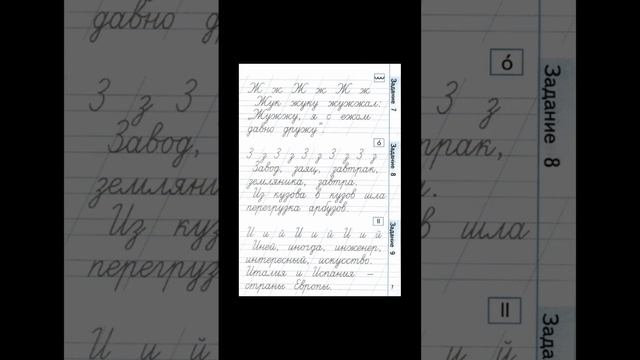 Задание 7
Ж ж Ж ж Ж ж
Жук жуку жужжал:
„Жужжу, я с ежом
давно дружу".
Задание 8
З з З з З з З з З з
Завод, заяц, завтрак,
земляника, завтра.
Из кузова в кузов шла
перегрузка арбузов.
Задание 9
И и й И и й И и й
Иней, иногда, инженер,
интересный, искусство.
Италия и Испания –
страны Европы.
7